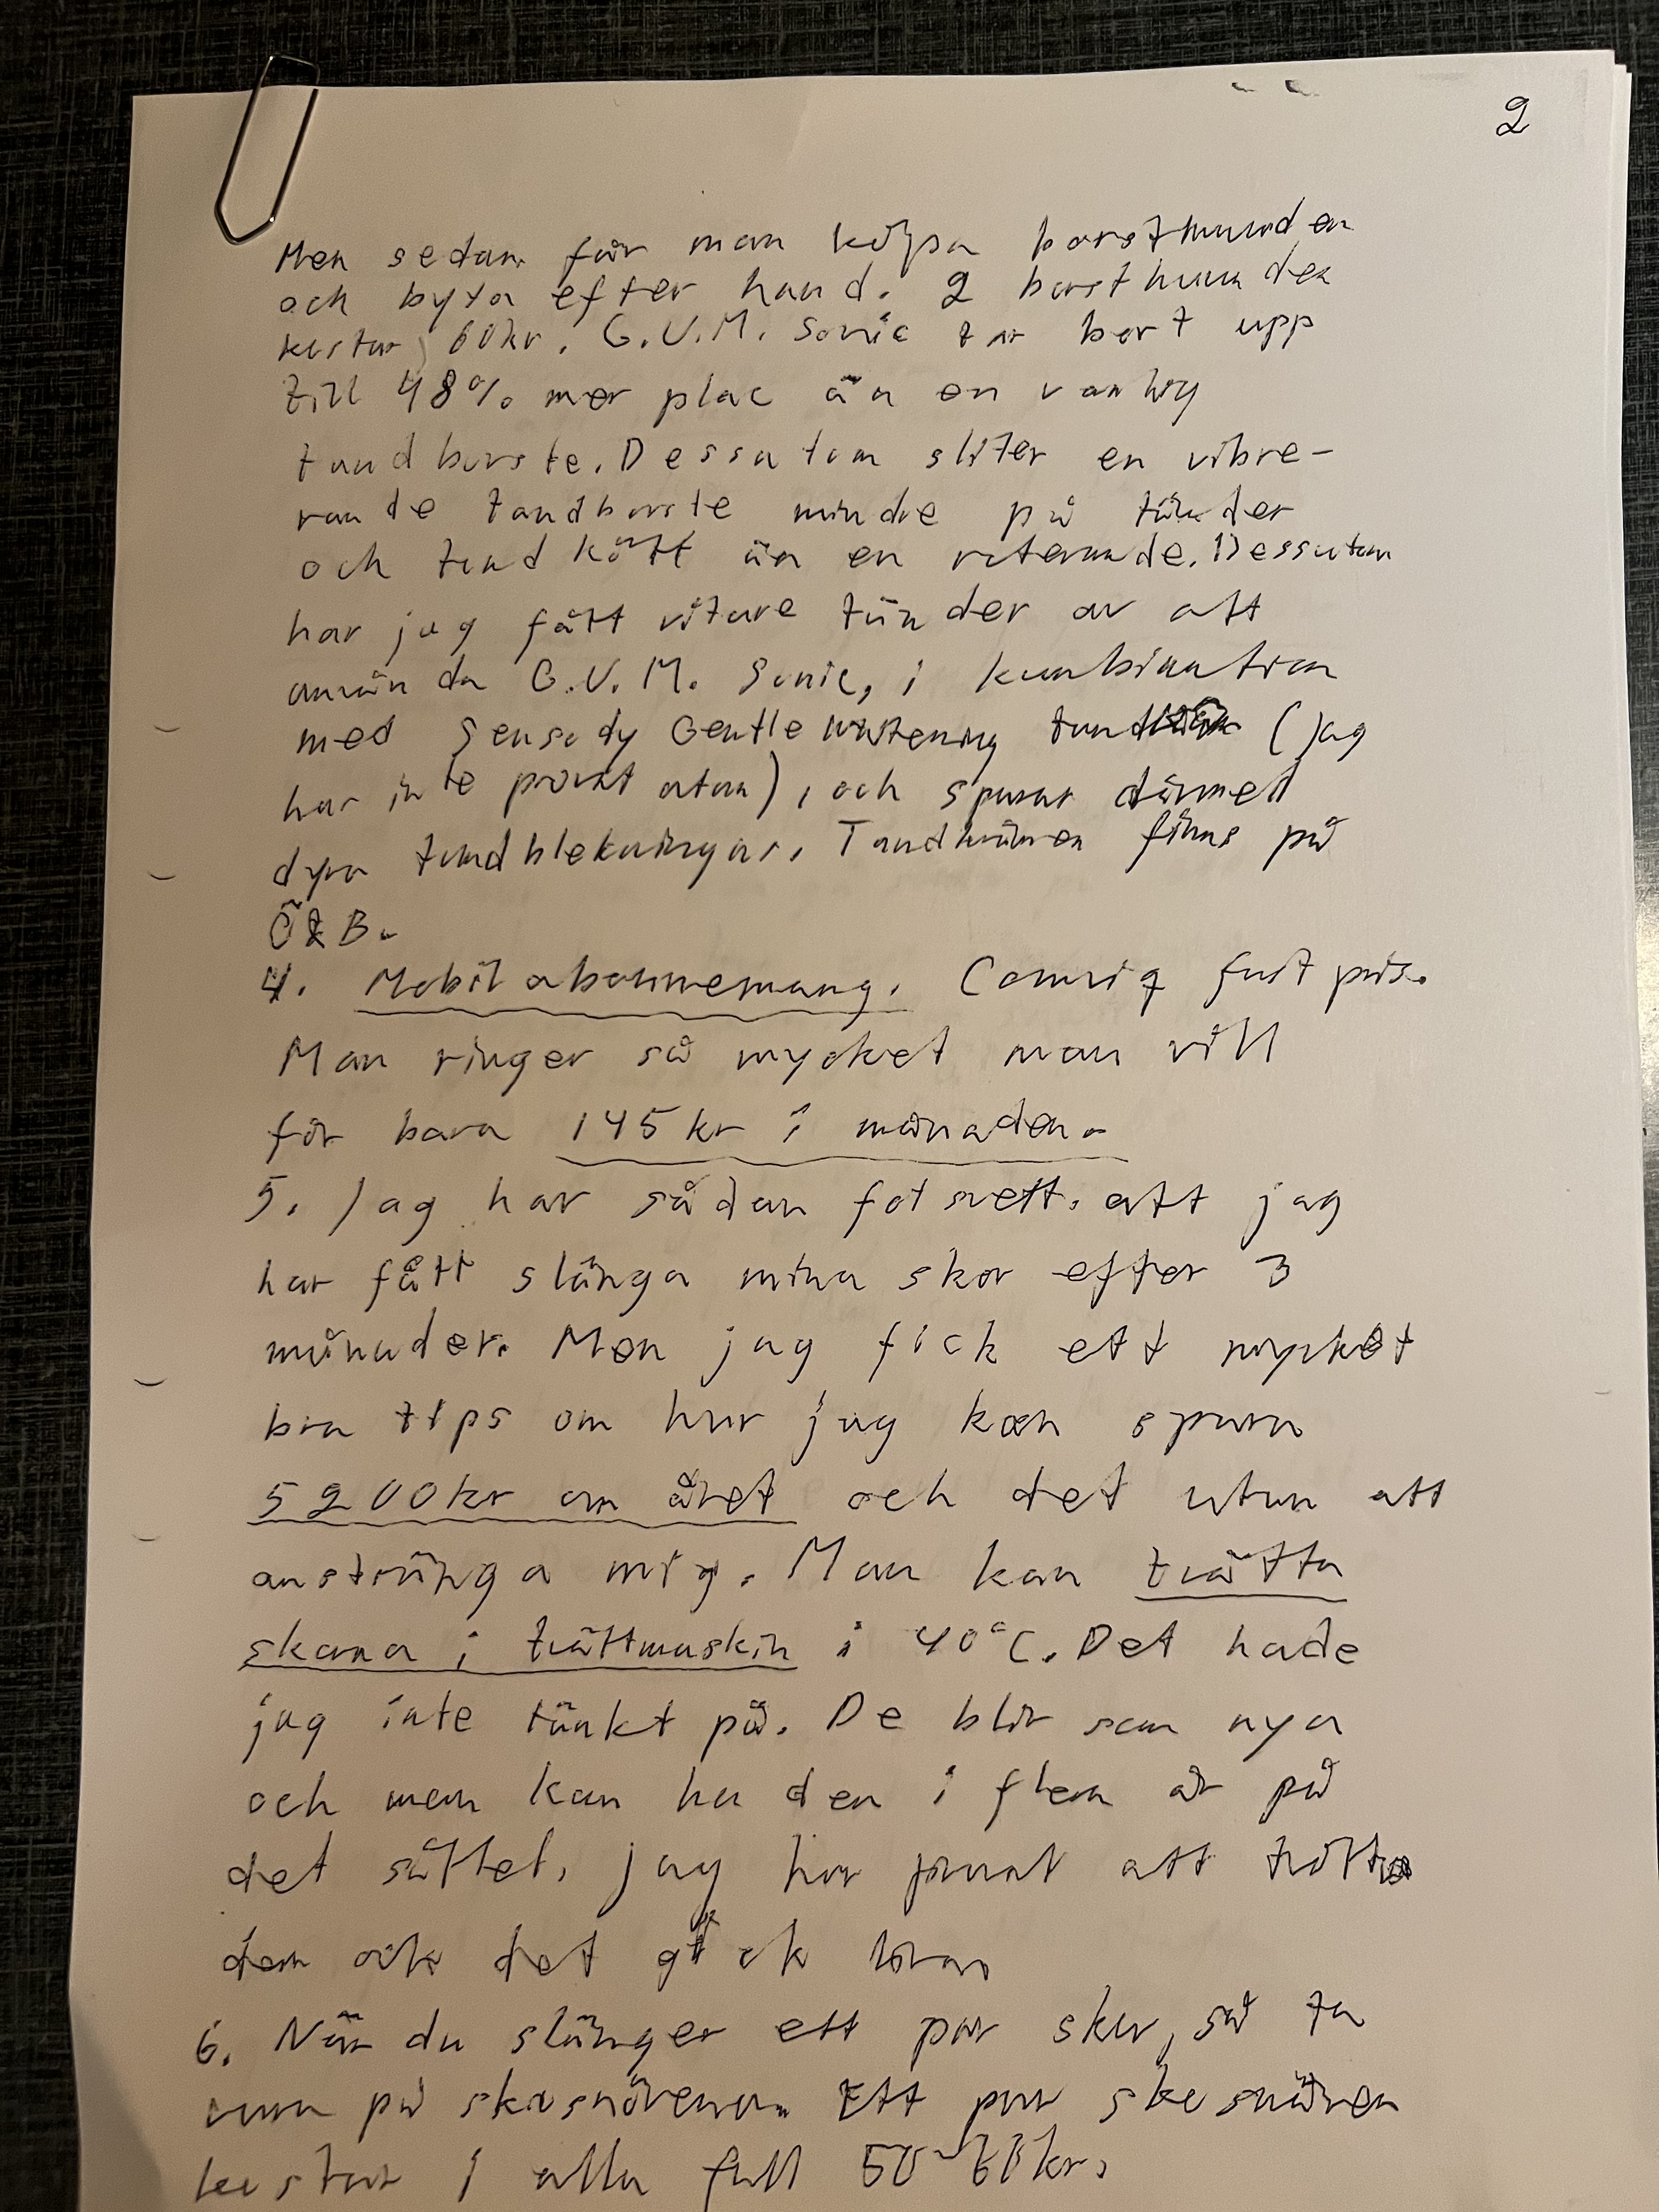 2
Men sedan får man köpa borsthuvuden
och byta efter hand. 2 borsthuvuden
kostar 60kr. G.U.M. Sonic tar bort upp
till 48% mer plac än en vanlig
tandborste. Dessutom sliter en vibre-
rande tandborste mindre på tänder
och tandkött än en roterande. Dessutom
har jag fått vitare tänder av att
använda G.U.M. Sonic, i kombination
med Sensody Gentle Whitening (jag
har inte provat utan), och sparar därmed
dyra tandblekningar. Tandkrämen finns på
ÖZB.
4. Mobilabonnemang. Comviq fast pris.
Man ringer så mycket man vill
för bara 145 kr i månaden.
5. Jag har sådan fotsvett. att jag
har fått slänga mina skor efter 3
månader. Men jag fick ett mycket
bra tips om hur jag kan spara
5200kr om året och det utan att
anstränga mig. Man kan tvätta
skorna i tvättmaskin i 40°C. Det hade
jag inte tänkt på. De blir som nya
och man kan ha den i flera år på
det sättet. Jag har provat att tvätta
dem och det gick bra.
6. När du slänger ett par skor, så ta
vara på skosnörena. Ett par skosnören
kostar i alla fall 50-60kr.